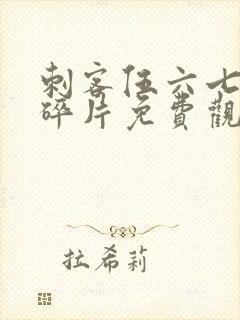 刺客伍六七
碎片免費觀
拉希莉